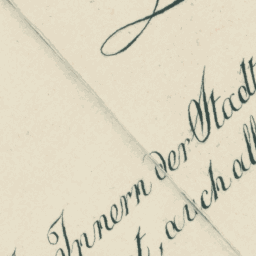 Innern der Stadt
t, auch all